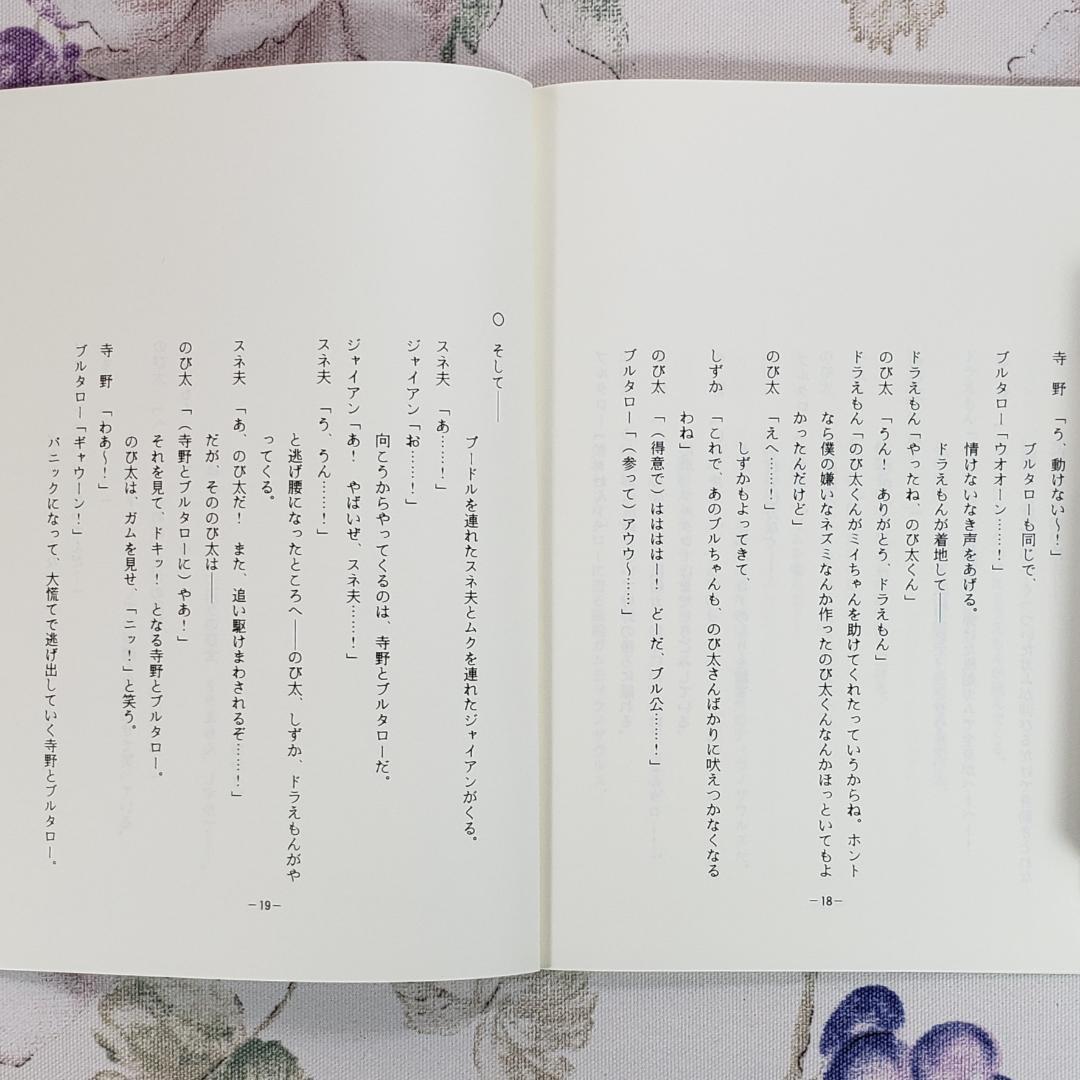 寺　野　「う、動けない～！」
ブルタローも同じで、
ブルタロー「ウオオーン……！」
情けないなき声をあげる。
ドラえもんが着地して――
ドラえもん「やったね、のび太くん」
のび太　「うん！　ありがとう、ドラえもん」
ドラえもん「のび太くんがミイちゃんを助けてくれたっていうからね。ホント
なら僕の嫌いなネズミなんか作ったのび太くんなんかほっといてもよ
かったんだけど」
のび太　「えへ……！」
しずかもよってきて、
しずか　「これで、あのブルちゃんも、のび太さんばかりに吠えつかなくなる
わね」
のび太　「（得意で）はははは―！　どーだ、ブル公……！」
ブルタロー「（参って）アウウ～……」
－18－
○　そして――
プードルを連れたスネ夫とムクを連れたジャイアンがくる。
スネ夫　「あ……！」
ジャイアン「お……！」
向こうからやってくるのは、寺野とブルタローだ。
ジャイアン「あ！　やばいぜ、スネ夫……！」
スネ夫　「う、うん……！」
と逃げ腰になったところへ――のび太、しずか、ドラえもんがや
ってくる。
スネ夫　「あ、のび太だ！　また、追い駆けまわされるぞ……！」
だが、そののび太は――
のび太　「（寺野とブルタローに）やあ！」
それを見て、ドキッ！となる寺野とブルタロー。
のび太は、ガムを見せ、「ニッ！」と笑う。
寺　野　「わあ～！」
ブルタロー「ギャウーン！」
パニックになって、大慌てで逃げ出していく寺野とブルタロー。
－19－